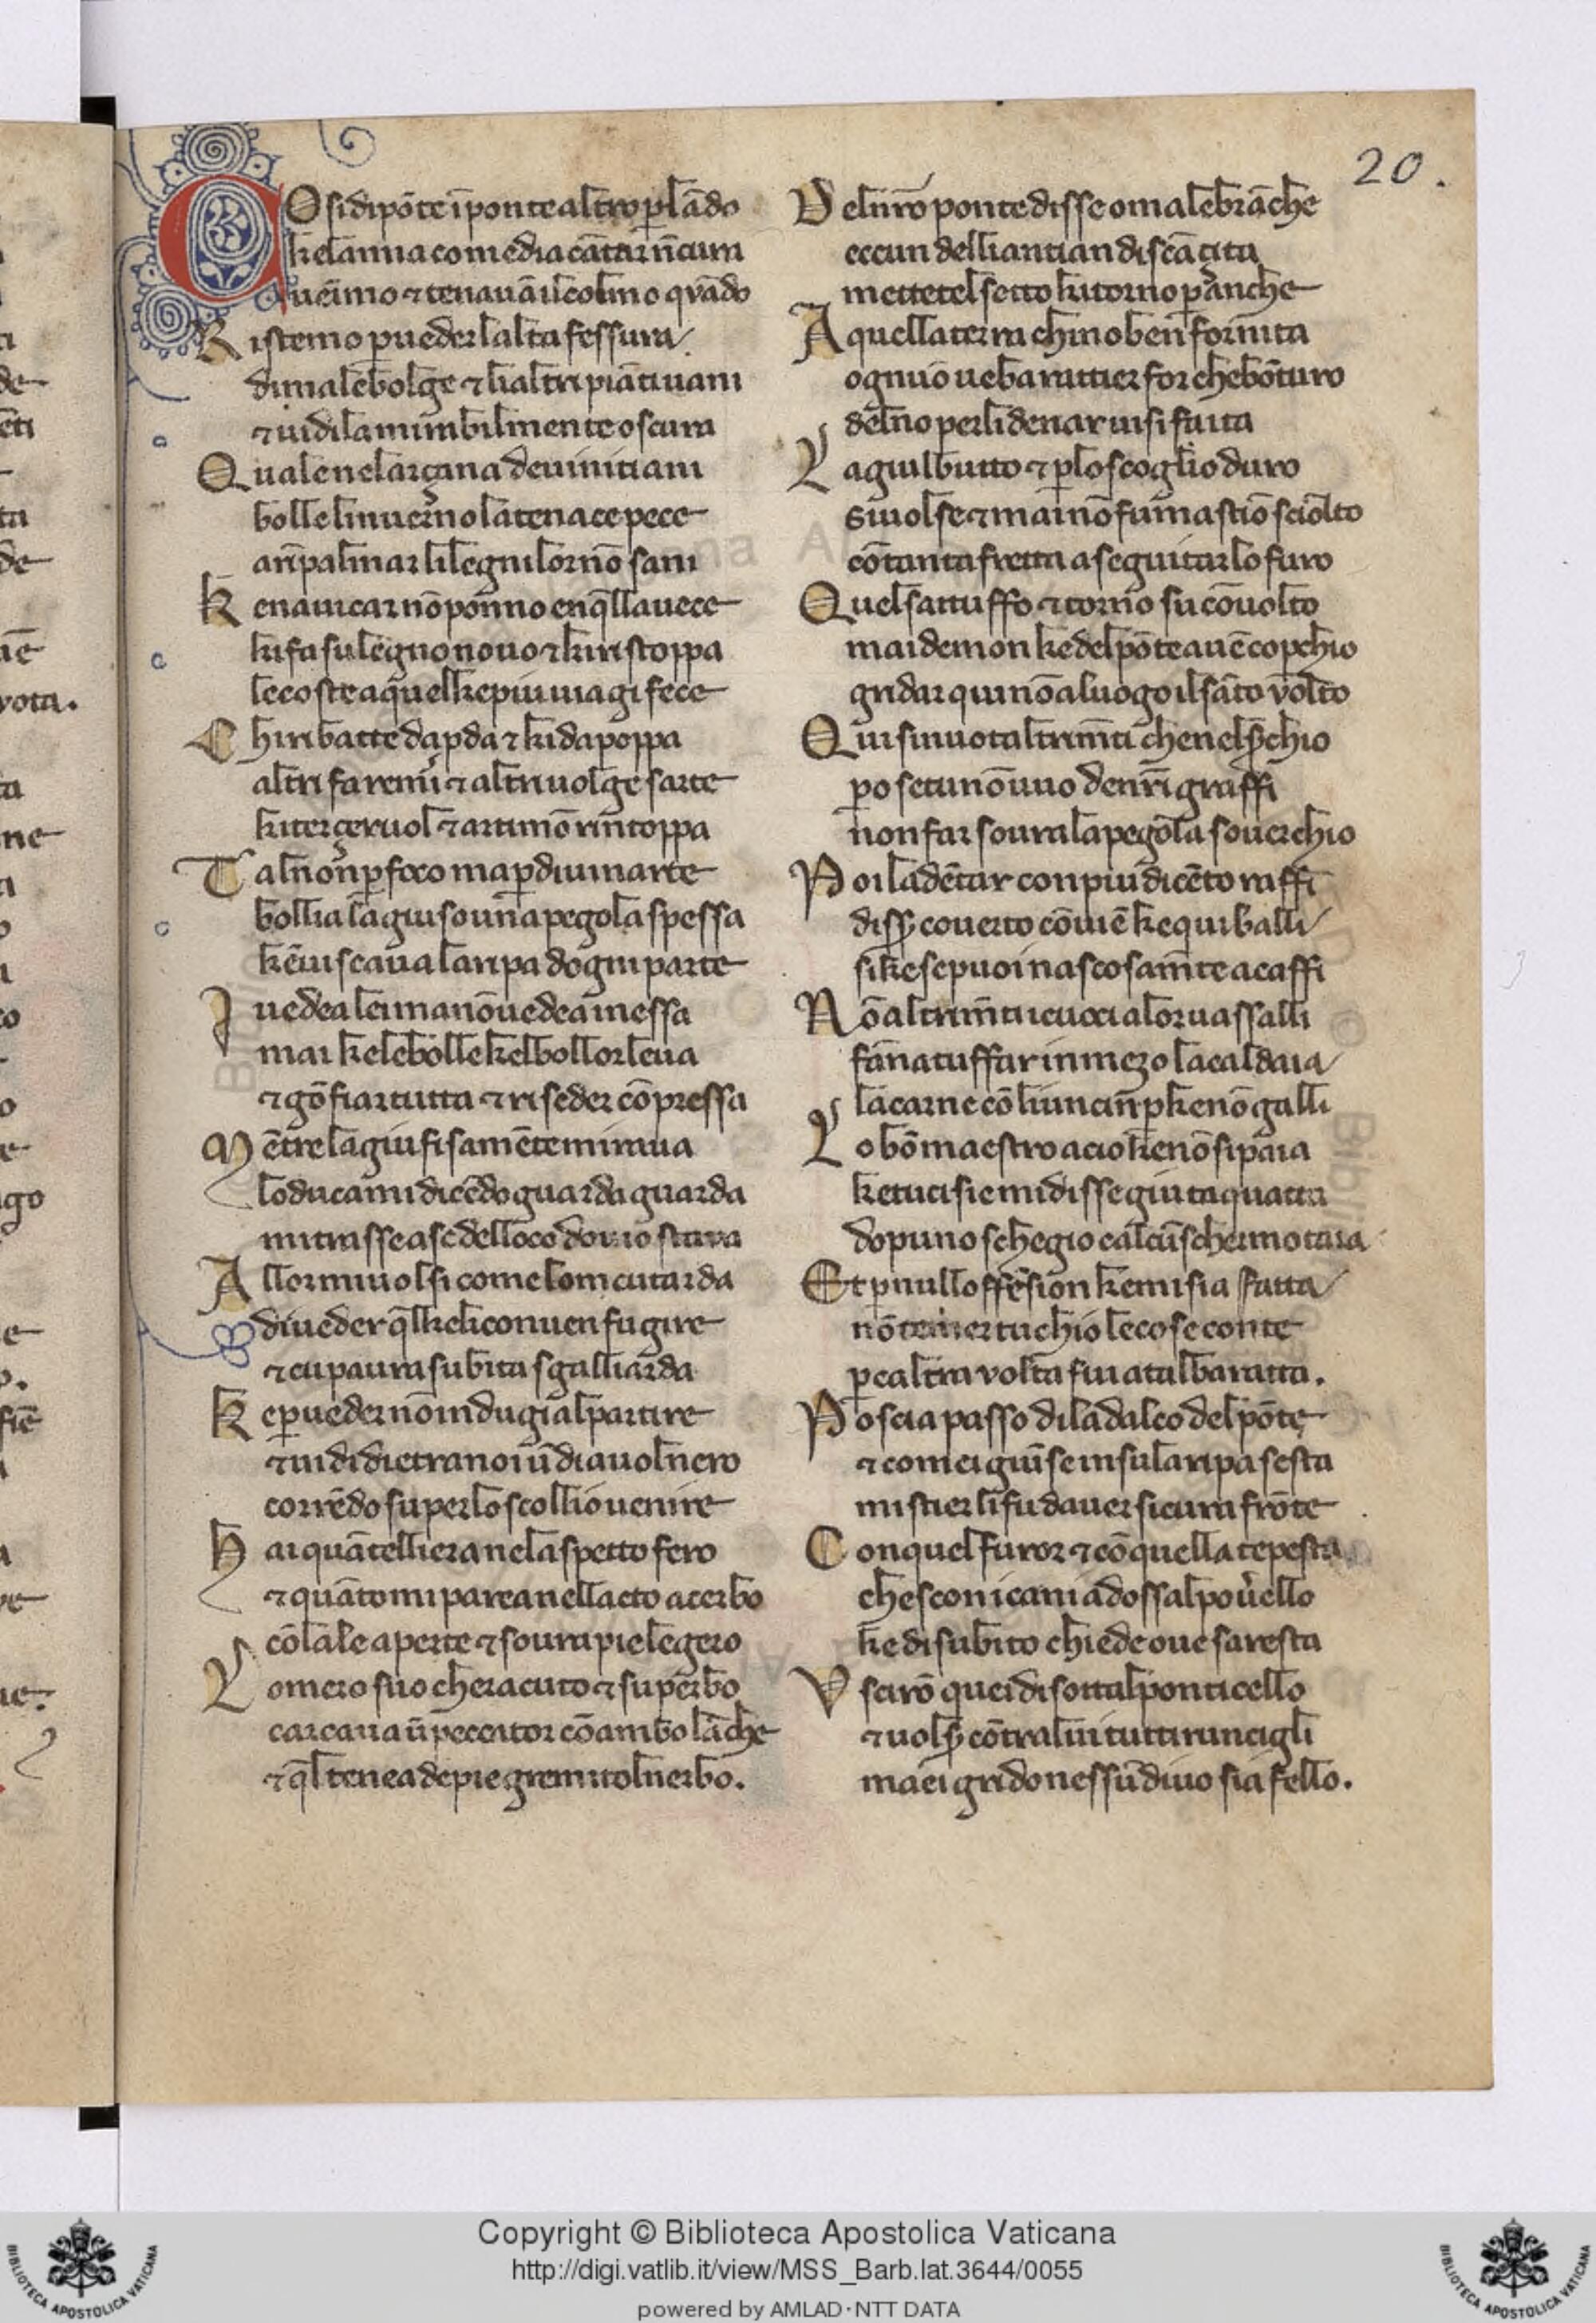 20.
COsidipōte īponte altro ꝑlādo
kelamia comedia cātar nō cura
venimo ⁊ tenavā il colmo qvādo
Ristemo ꝑ ueder laltafessura
dimalebolge ⁊ lialtri piāti uani
⁊ uidila mirabilmente oscura
Quale nelarçana deuinitiani
bolle linuerno latenace pece
arīpalmar lilegni lor nō sani
kenauicar nō ponno enq̄llauece
kifa sulegno nouo ⁊ kiristoppa
lecoste aquel kepiu uiagi fece
Chiribatte dapda ⁊ kidapoppa
altri faremi ⁊ altri uolge sarte
kiterçeruol ⁊ artimō rintoppa
Tal non ꝑ foco ma ꝑ diuinarte
bollia lagiuso una pegola spessa
kēuiscaua laripa dogni parte
Iuedea lei ma nō uedea inessa
mai kelebolle kelbollor leua
⁊ gōfiar tutta ⁊ riseder cōpressa
Mētre lagiu fisamēte miraua
loduca mi dicēdo guarda guarda
mitrasse ase delloco dou io staua
Allor miuolsi come lom cui tarda
diueder q̄l keli conuen fugire
⁊ cui paura subita sgalliarda
ke ꝑ ueder nō indugia lpartire
⁊ uidi dietranoi ū diauol nero
corrēdo su per lo scollio uenire
Hai quātelliera nelaspetto fero
⁊ quāto mi parea nellacto acerbo
cō lale aperte ⁊ soura pie legero
Lomero suo chera cuto ⁊ superbo
carcaua ū peccator cō ambo lāche
⁊ q̄l tenea depie gremitol nerbo.
Del nr̄o ponte disse o malebrāche
eccun delli antian di scā çita
mettetel sotto kitorno ꝑ anche
A quella terra chino ben fornita
ognuō ueba rattier for che bōturo
del no per li denar uisi fa ita
Lagiu lbutto ⁊ ꝑ loscoglio duro
siuolse ⁊ mai nō fu mastīo sciolto
cō tanta fretta a seguitar lo furo
Quel sattuffo ⁊ torno su cōuolto
mai demon ke del pōte auē copchio
gridar qui nō a luogo il sāto volto
Qui si nuota altrimēti che nel sꝑchio
ꝑo se tu nō uuo de nr̄i graffi
non far soura la pegola souerchio
Poi ladētar con piu dicēto raffi
disser couerto cōuiē ke qui balli
sike se puoi nascosamēte acaffi
Nō altrimēti i cuoci alor uassalli
fāno attuffar in mezo la caldaia
la carne cō li uncin ꝑ ke nō galli
Lo bō maestro acio ke nō si paia
ke tu ci sie mi disse giu taquatta
dop uno schegio calcū schermo taia
Et ꝑ nulla offēsion ke mi sia fatta
nō temer tu chio le cose conte
ꝑ caltra volta fui a tal baratta.
Poscia passo di la dal co del pōte
⁊ come i giūse in su la ripa sesta
mistier li fu dauer sicura frōte
Con quel furor ⁊ cō quella tēpesta
chescon i cani a dossal pouello
ke di subito chiede oue saresta
Usciro quei di sottal ponticello
⁊ uolser cōtra lui tutti runcigli
ma ei grido nessū di uio sia fello.
Copyright © Biblioteca Apostolica Vaticana
http://digi.vatlib.it/view/MSS_Barb.lat.3644/0055
powered by AMLAD·NTT DATA
BIBLIOTECA APOSTOLICA VATICANA
BIBLIOTECA APOSTOLICA VATICANA